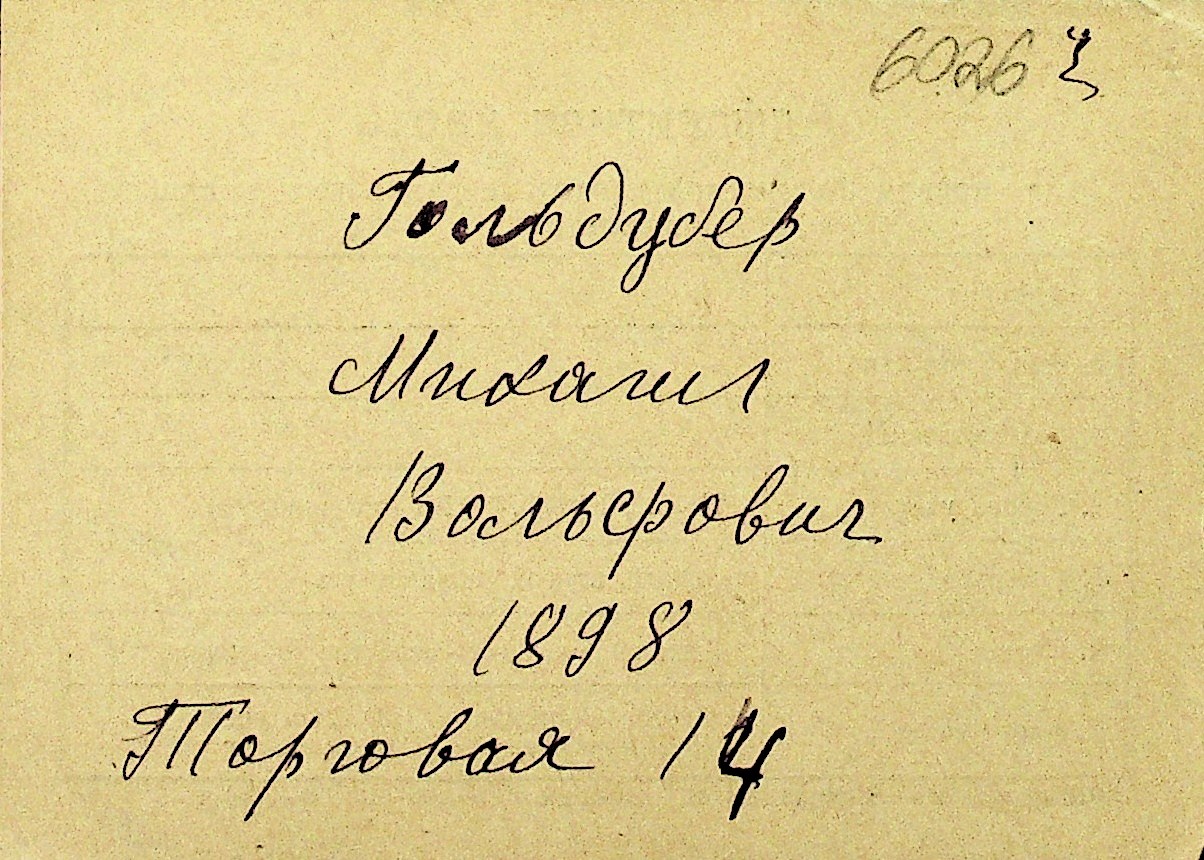 6026
Гольдубер
Михаил
Вольфович
1898
Торговая 14